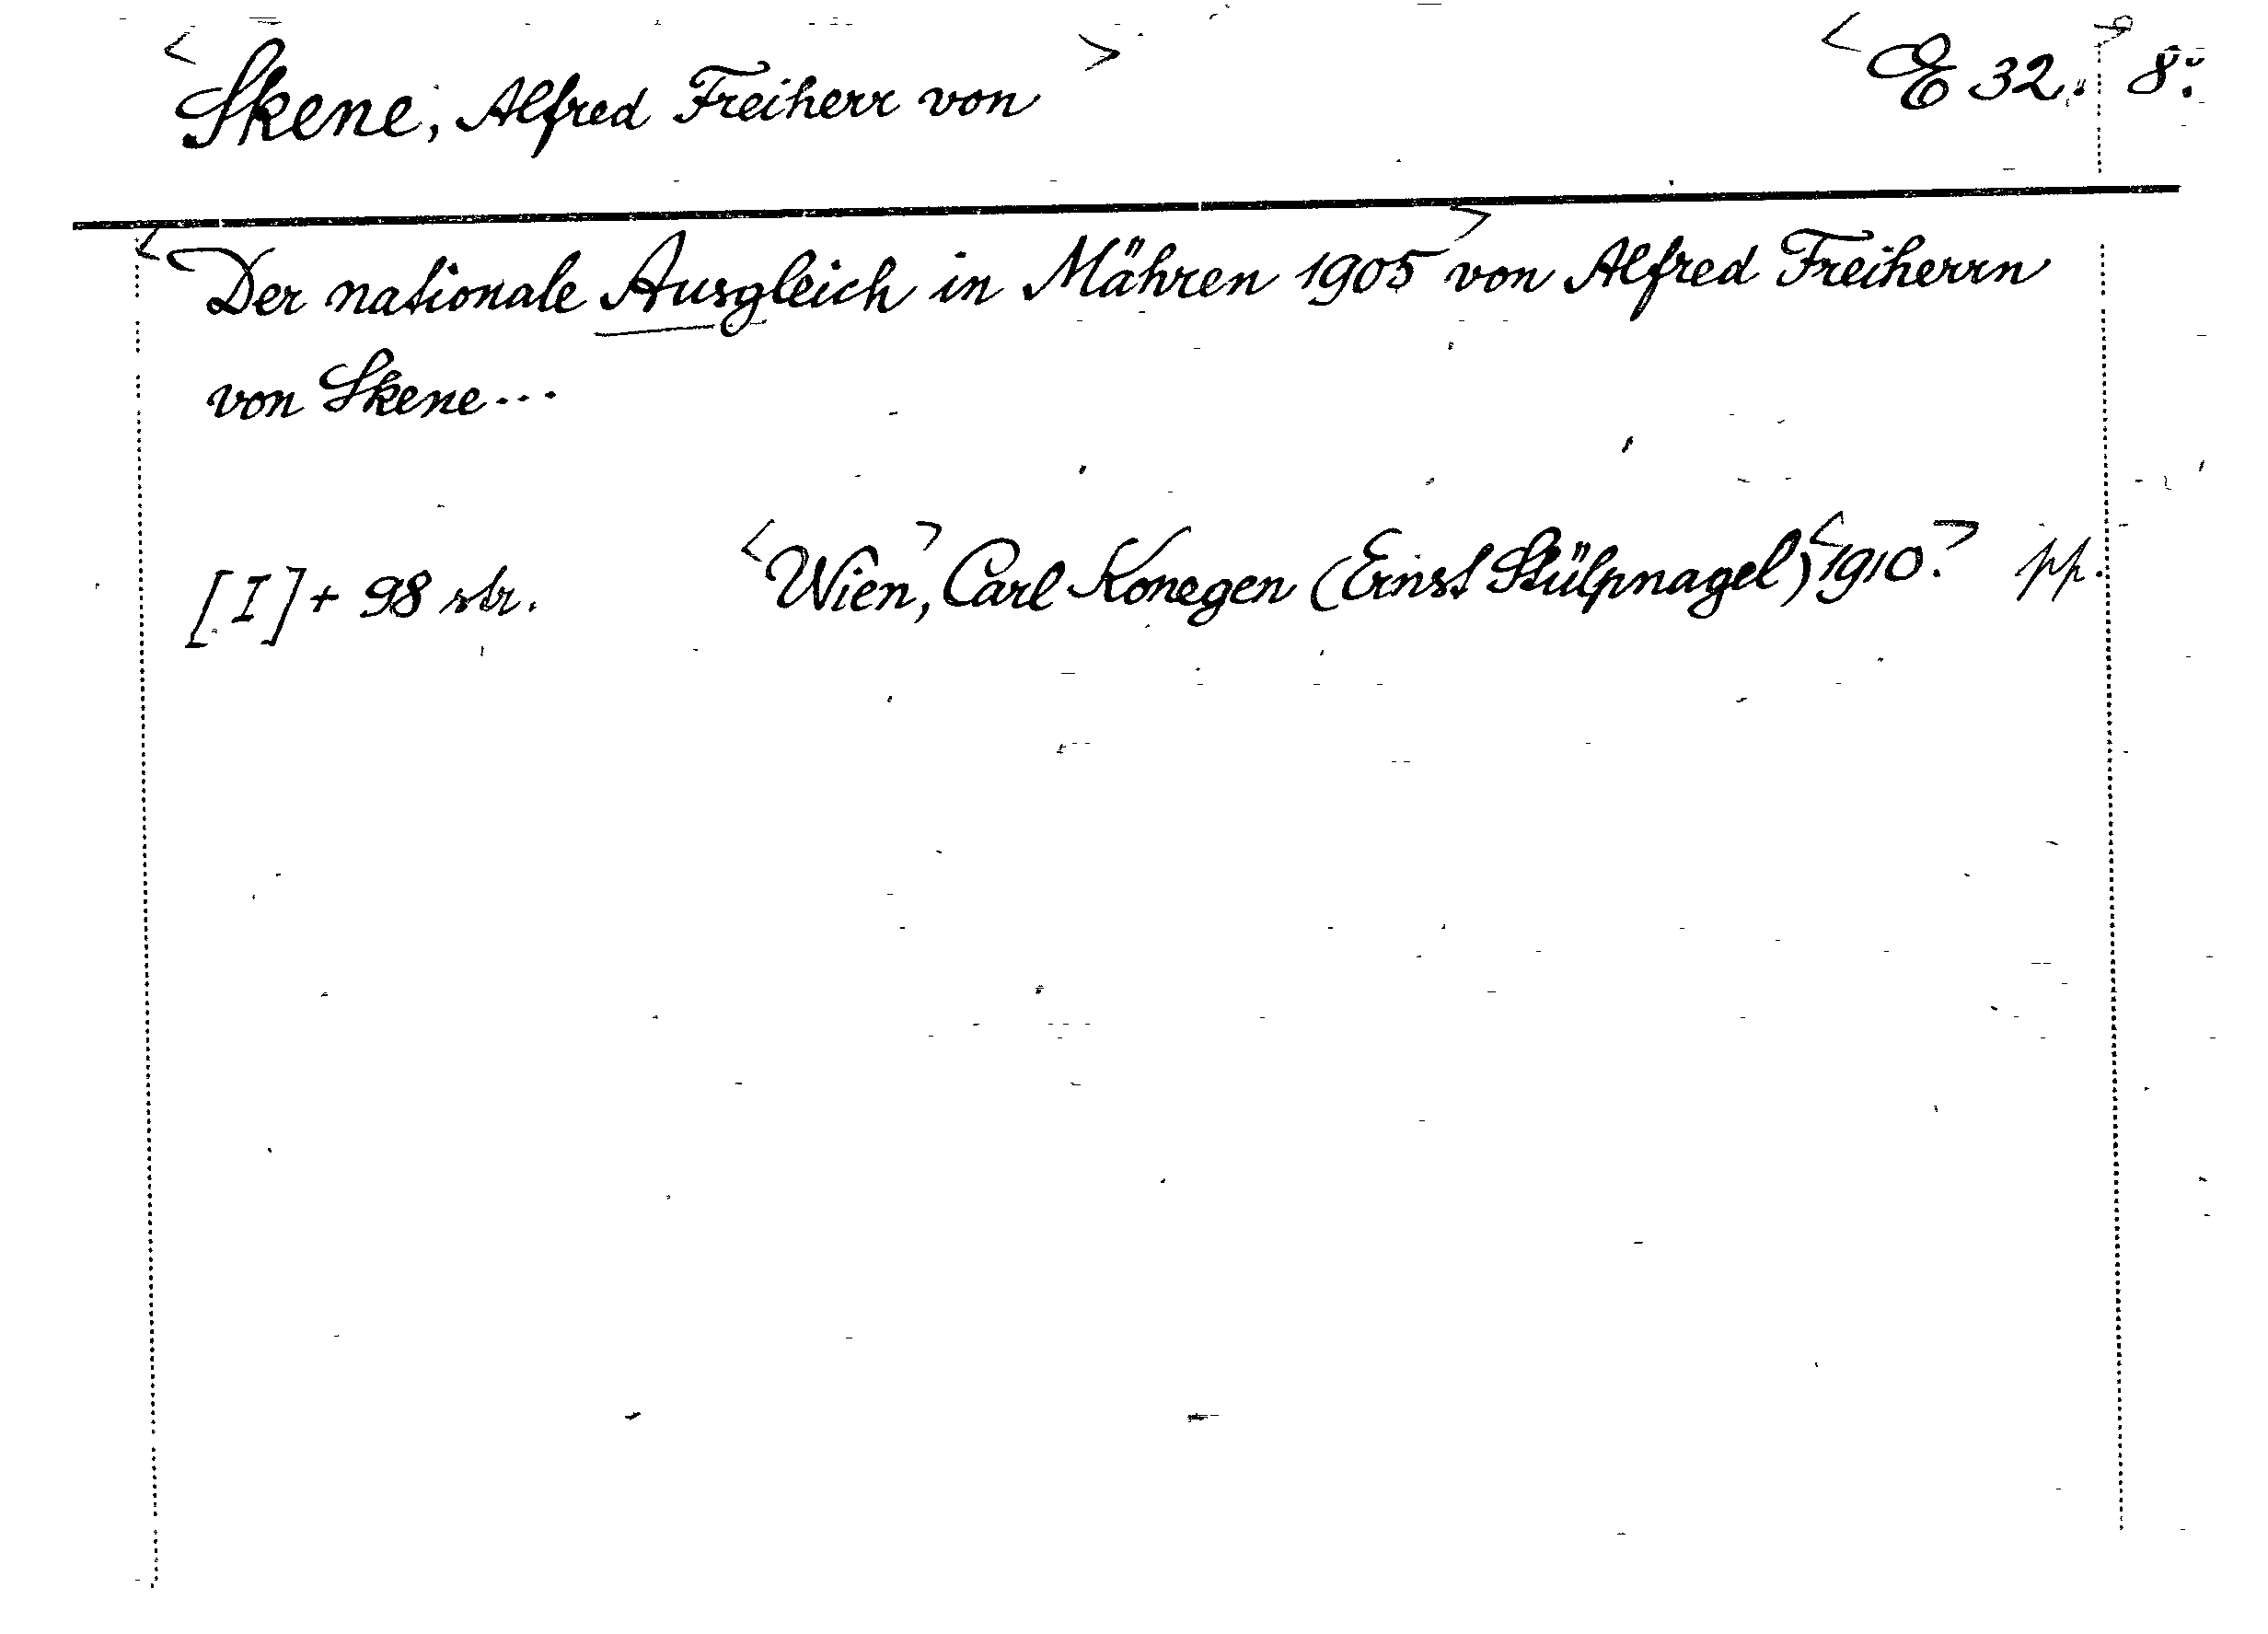 <Skene, Alfred Freiherr von> <E 32.> 8:
<Der nationale Ausgleich in Mähren 1905> von Alfred Freiherrn
von Skene...
[I] + 98 str. <Wien>, Carl Konegen (Ernst Stülpnagel) <1910.> pp.